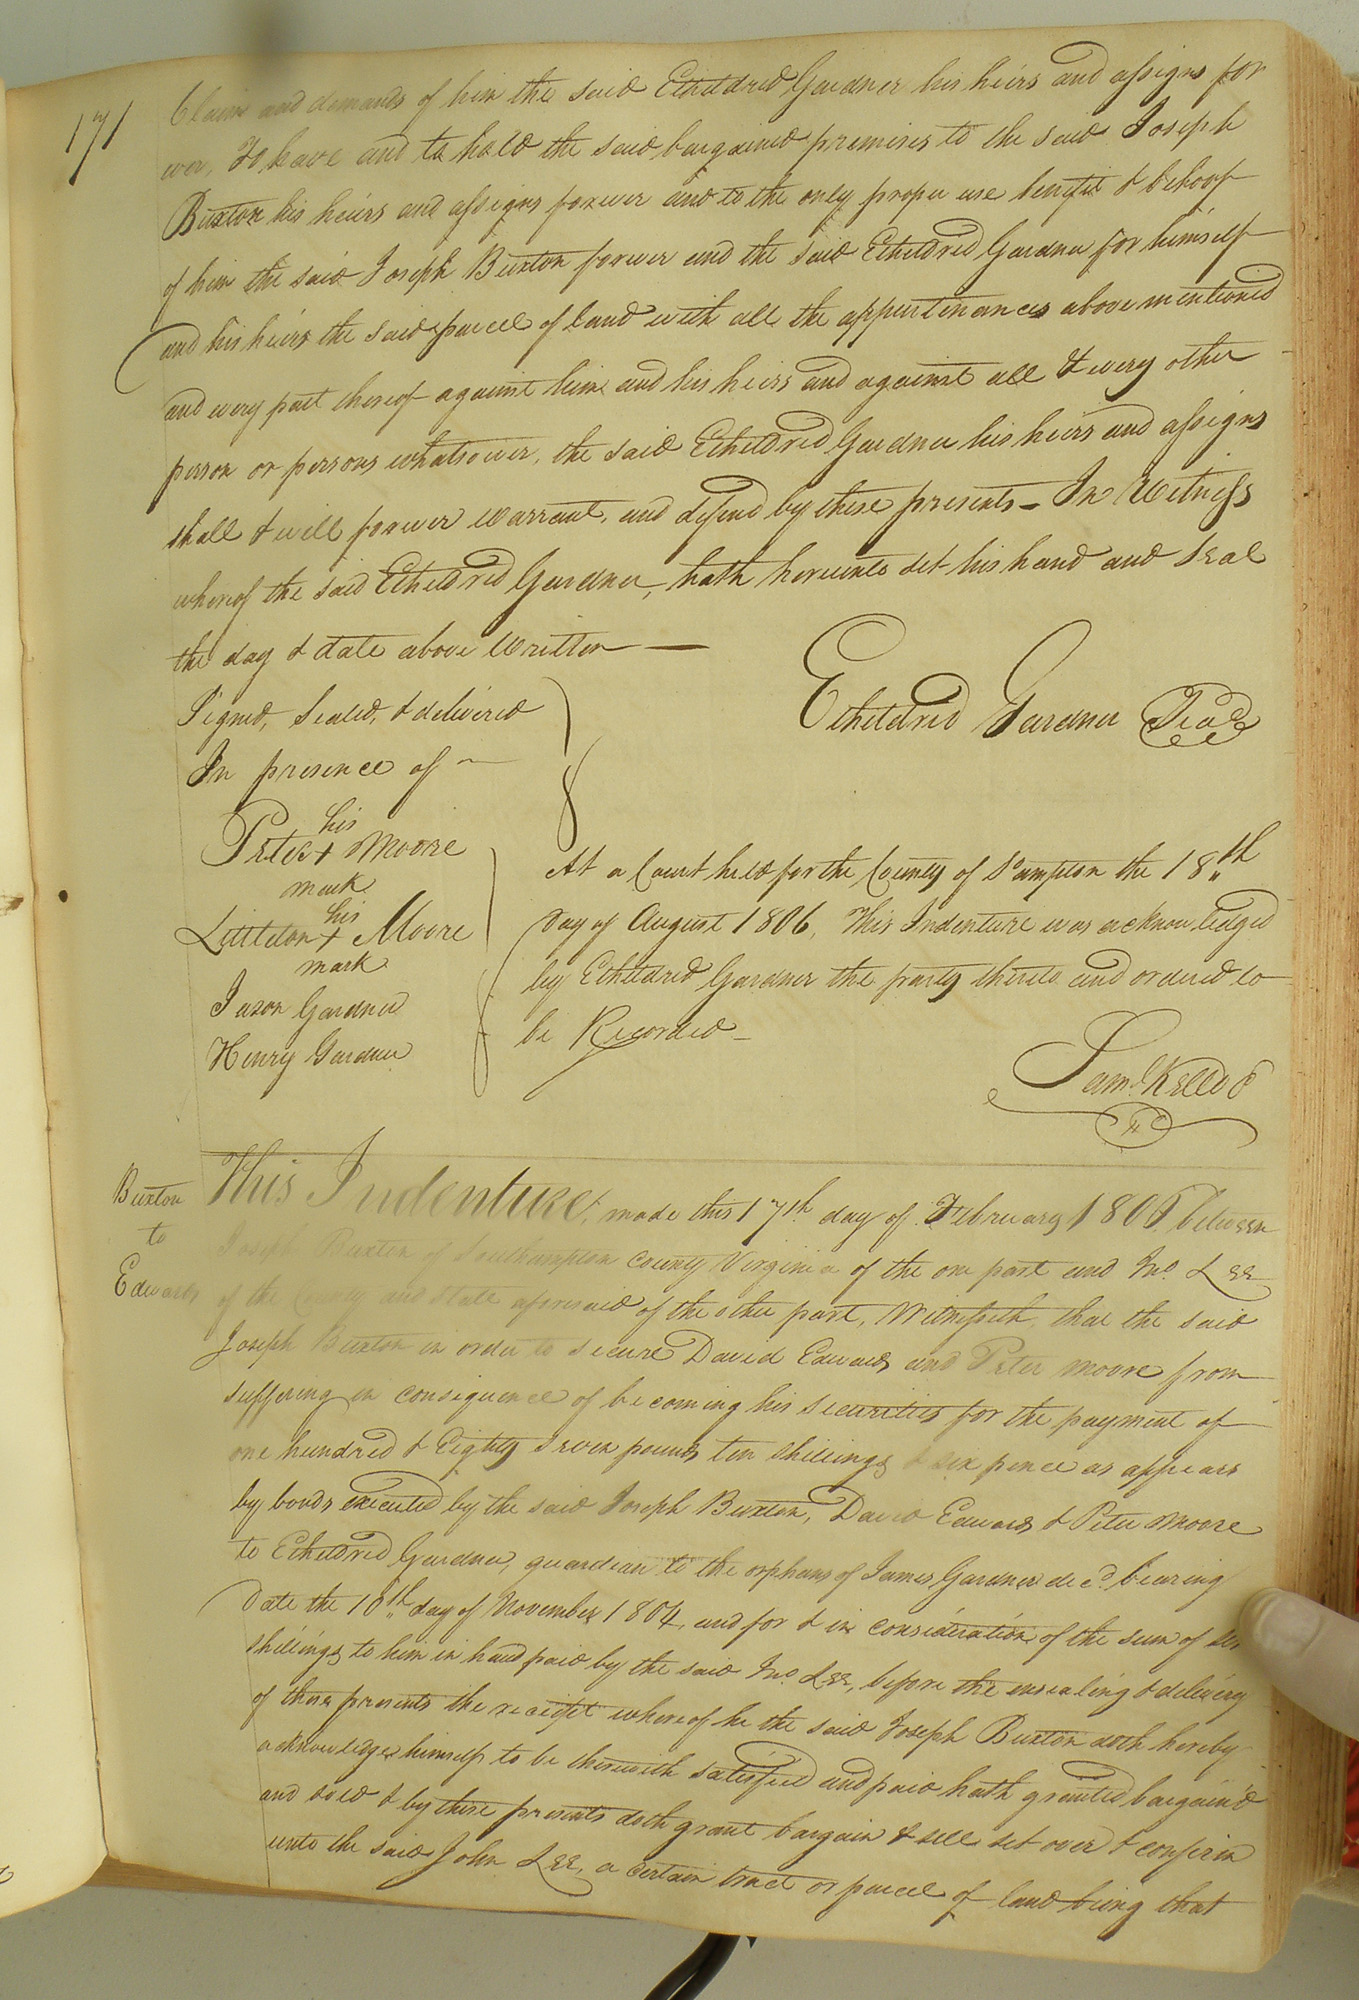 171
Claim and demands of him the said Etheldred Gardner his heirs and assigns for
ever, To have and to hold the said bargained premises to the said Joseph
Buxton his heirs and assigns forever and to the only proper use benefit & behoof
of him the said Joseph Buxton forever and the said Etheldred Gardner for himself
and his heirs the said parcel of land with all the appurtinances above mentioned
and every part thereof against him and his heirs and against all & every other
person or persons whatsoever, the said Etheldred Gardner his heirs and assigns
shall & will forever warrant, and defend by these presents - In Witness
whereof the said Etheldred Gardner, hath hereunto set his hand and seal
the day & date above Written —
Signed, Sealed, & delivered
In presence of ~
Etheldred Gardner Seal
his
Peter + Moore
mark
his
Littleton + Moore
mark
Jason Gardner
Henry Gardner
At a Court held for the County of S°ampton the 18th
day of August 1806, This Indenture was acknowledged
by Etheldred Gardner the party thereto and ordered to
be Recorded -
Saml Kello C
Buxton
to
Edwards
This Indenture, made this 17th day of February 1806 between
Joseph Buxton of Southampton County Virginia of the one part and Jno. Lee
of the County and State aforesaid of the other part, Witnesseth, that the said
Joseph Buxton in order to secure David Edwards and Peter Moore from
suffering in consequence of becoming his securities for the payment of
one hundred & Eighty seven pounds ten shillings & six pence as appears
by bonds executed by the said Joseph Buxton, David Edwards & Peter Moore
to Etheldred Gardner, guardian to the orphans of James Gardner decd. bearing
date the 10th day of November 1804, and for & in consideration of the sum of ten
shillings to him in hand paid by the said Jno. Lee, before the ensealing & delivery
of these presents the receipt whereof he the said Joseph Buxton doth hereby
acknowledge himself to be therewith satisfied and paid hath granted bargain'd
and sold & by these presents doth grant bargain & sell set over & confirm
unto the said John Lee, a certain tract or parcel of land being that